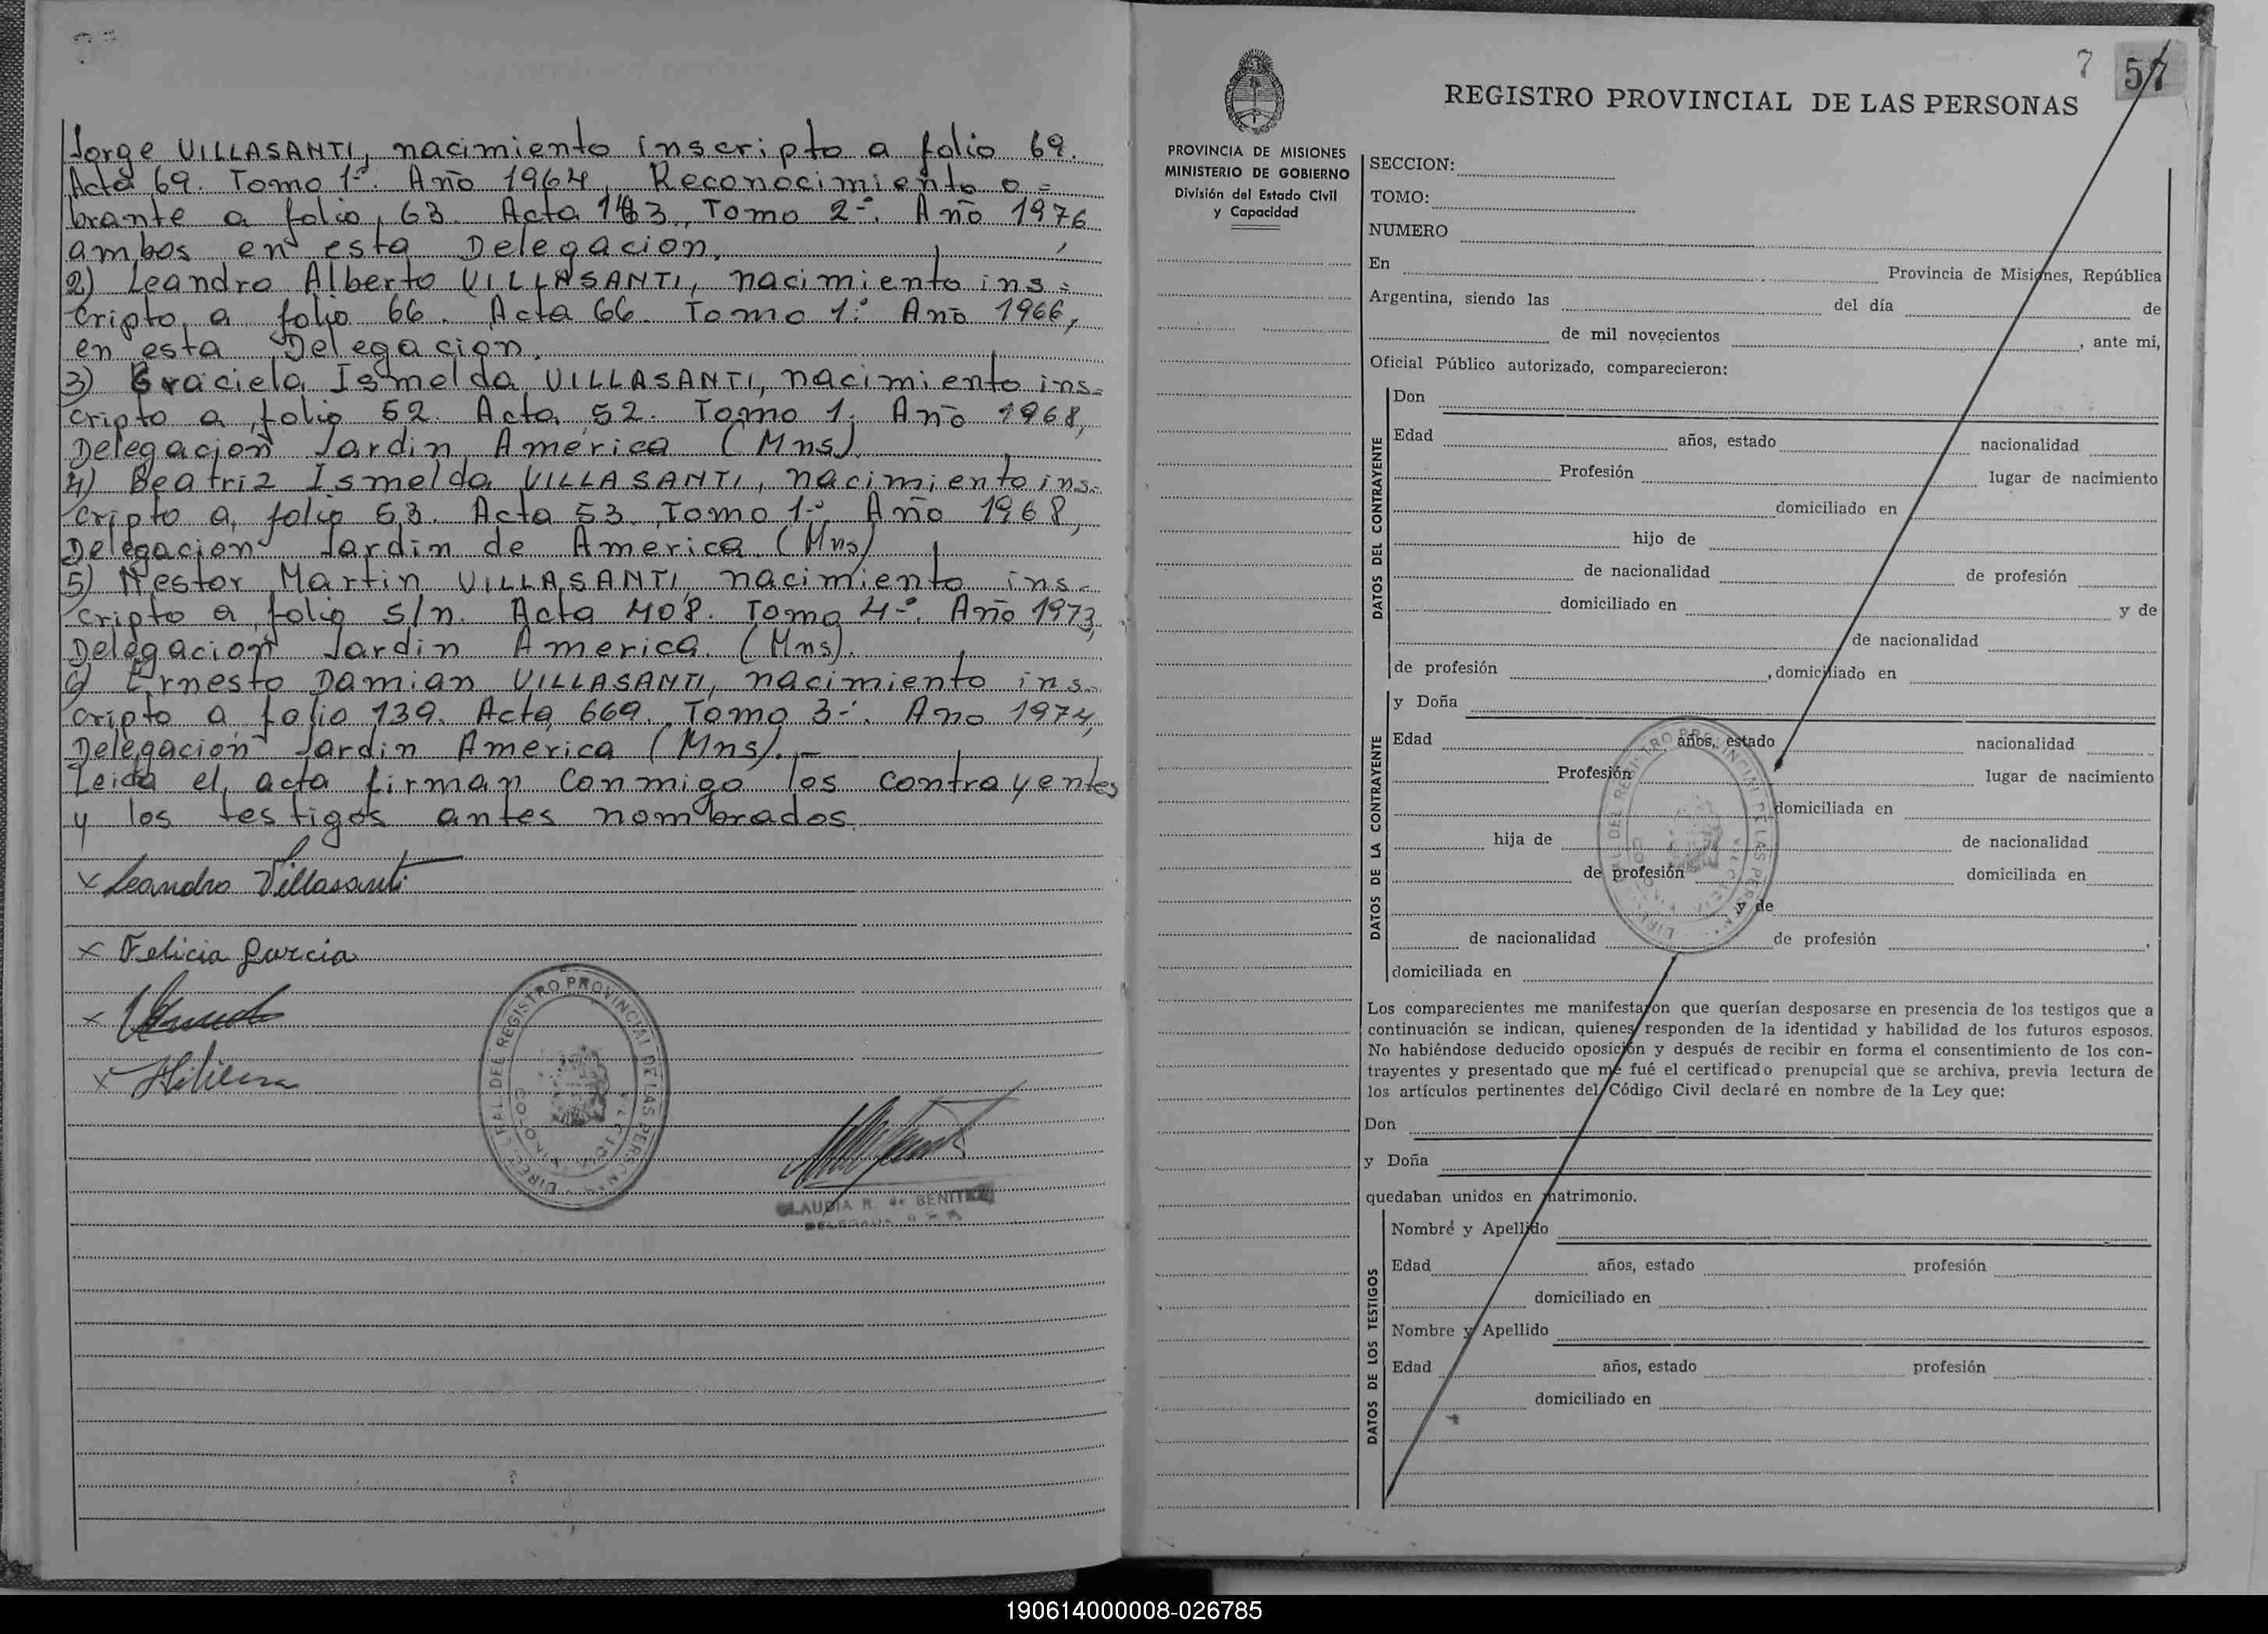 Jorge VILLASANTI, nacimiento inscripto a folio 69.
Acta 69. Tomo 1º. Año 1964, Reconocimiento o=
brante a folio, 63. Acta 143, Tomo 2º. Año 1976
ambos en esta Delegacion.
2) Leandro Alberto VILLASANTI, nacimiento ins=
cripto, a folio 66. Acta 66. Tomo 1º Año 1966,
en esta Delegacion.
3) Graciela Ismelda VILLASANTI, nacimiento ins=
cripto a folio 52. Acta 52. Tomo 1. Año 1968,
Delegacion Jardin América (Mns).
4) Beatriz Ismelda VILLASANTI, nacimiento ins-
cripto a, folio 53. Acta 53. Tomo 1º Año 1968,
Delegacion Jardin de America. (Mns)
5) Nestor Martin VILLASANTI, nacimiento ins-
cripto a folio s/n. Acta 408. Tomo 4º. Año 1973,
Delegacion Jardin America. (Mns).
6) Ernesto Damian VILLASANTI, nacimiento ins-
cripto a folio 139. Acta 669. Tomo 3º. Año 1974,
Delegacion Jardin America (Mns).-
Leida el acta firman conmigo los contrayentes
y los testigos antes nombrados.
x Leandro Villasanti
x Felicia Garcia
x
x
DIREC. GRAL. DEL REGISTRO PROVINCIAL DE LAS PERSONAS
CLAUDIA R. de BENITEZ
7 57
REGISTRO PROVINCIAL DE LAS PERSONAS
PROVINCIA DE MISIONES
MINISTERIO DE GOBIERNO
División del Estado Civil
y Capacidad
SECCION:
TOMO:
NUMERO
En Provincia de Misiones, República
Argentina, siendo las del día de
de mil novecientos , ante mi,
Oficial Público autorizado, comparecieron:
DATOS DEL CONTRAYENTE
Don
Edad años, estado nacionalidad
Profesión lugar de nacimiento
domiciliado en
hijo de
de nacionalidad de profesión
domiciliado en y de
de nacionalidad
de profesión , domiciliado en
DATOS DE LA CONTRAYENTE
y Doña
Edad años, estado nacionalidad
Profesión lugar de nacimiento
domiciliada en
hija de de nacionalidad
de profesión domiciliada en
y de
de nacionalidad de profesión ,
domiciliada en
DEL REGISTRO PROVINCIAL DE LAS PERSONAS
Los comparecientes me manifestaron que querían desposarse en presencia de los testigos que a
continuación se indican, quienes responden de la identidad y habilidad de los futuros esposos.
No habiéndose deducido oposición y después de recibir en forma el consentimiento de los con-
trayentes y presentado que me fué el certificado prenupcial que se archiva, previa lectura de
los artículos pertinentes del Código Civil declaré en nombre de la Ley que:
Don
y Doña
quedaban unidos en matrimonio.
DATOS DE LOS TESTIGOS
Nombre y Apellido
Edad años, estado profesión
domiciliado en
Nombre y Apellido
Edad años, estado profesión
domiciliado en
190614000008-026785